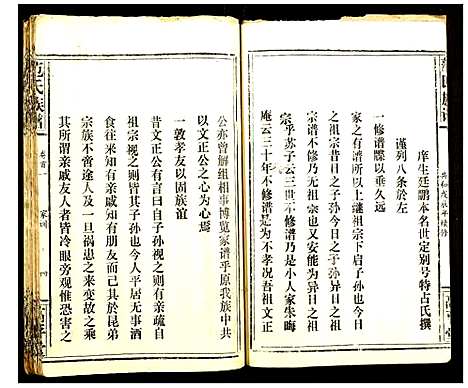 庠生廷鵬本名世定别号特占氏撰
謹列八条於左
一修譜牒以垂久遠
宗譜者所以上継祖宗下启子孫者也今日
之祖宗昔日之子孫今日之子孫異日之祖
宗譜不修乃无祖宗也又安能為異日之祖
宗乎苏子云三世不修譜乃是小人家朱晦
庵云三十年不修譜是为不孝况吾祖文正
公亦曾解组相事博覧家谱乎原我族中共
以文正公之心为心焉
一敦孝友以固族谊
昔文正公有言曰自子孫視之则有亲疏自
祖宗視之则皆其子孫也今人平居无事酒
食往来知有朋友不知有亲戚甚於昆弟
宗族不啻途人及一旦禍患之来变故之乘
其所谓亲戚友人者皆冷眼旁观惟恐害之
范氏族譜
卷首
家訓
四